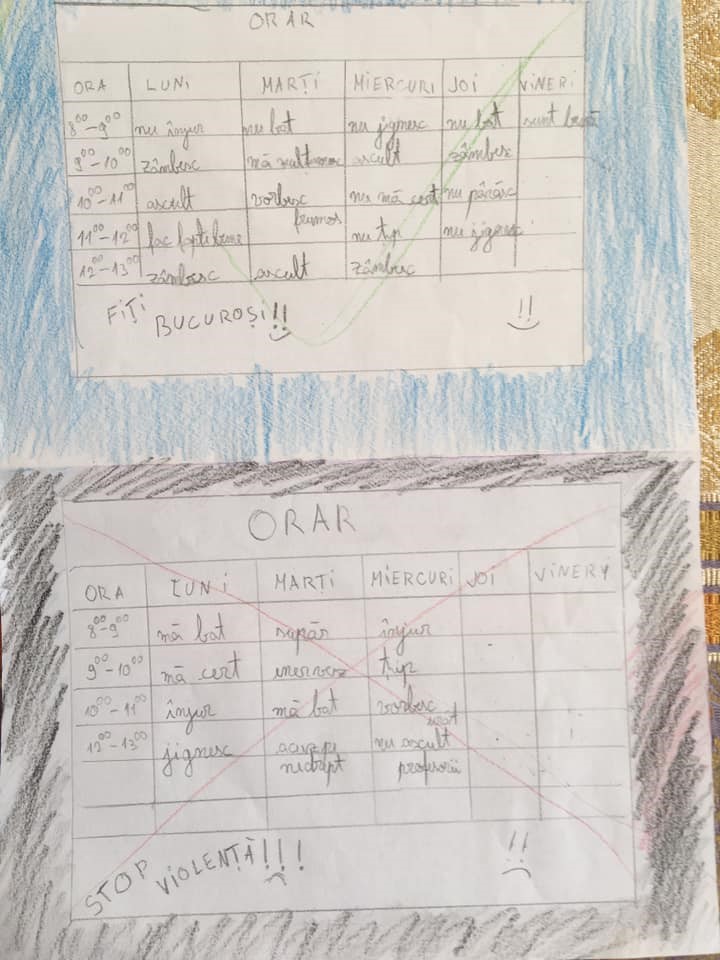 ORAR
ORA LUNI MARȚI MIERCURI JOI VINERI
8⁰⁰-9⁰⁰ nu înjur nu bat nu jignesc nu bat sunt
9⁰⁰-10⁰⁰ zâmbesc mă ascult zâmbesc
10⁰⁰-11⁰⁰ ascult vorbesc nu mă cert nu pârăsc
frumos
11⁰⁰-12⁰⁰ fac fapte bune nu țip nu jignesc
12⁰⁰-13⁰⁰ zâmbesc ascult zâmbesc
FIȚI BUCUROȘI!! !!
ORAR
ORA LUNI MARȚI MIERCURI JOI VINERY
8⁰⁰-9⁰⁰ mă bat supăr înjur
9⁰⁰-10⁰⁰ mă cert enervez țip
10⁰⁰-11⁰⁰ înjur mă bat vorbesc
urat
12⁰⁰-13⁰⁰ jignesc nu ascult
nedrept profesorii
STOP VIOLENȚĂ!!! !!